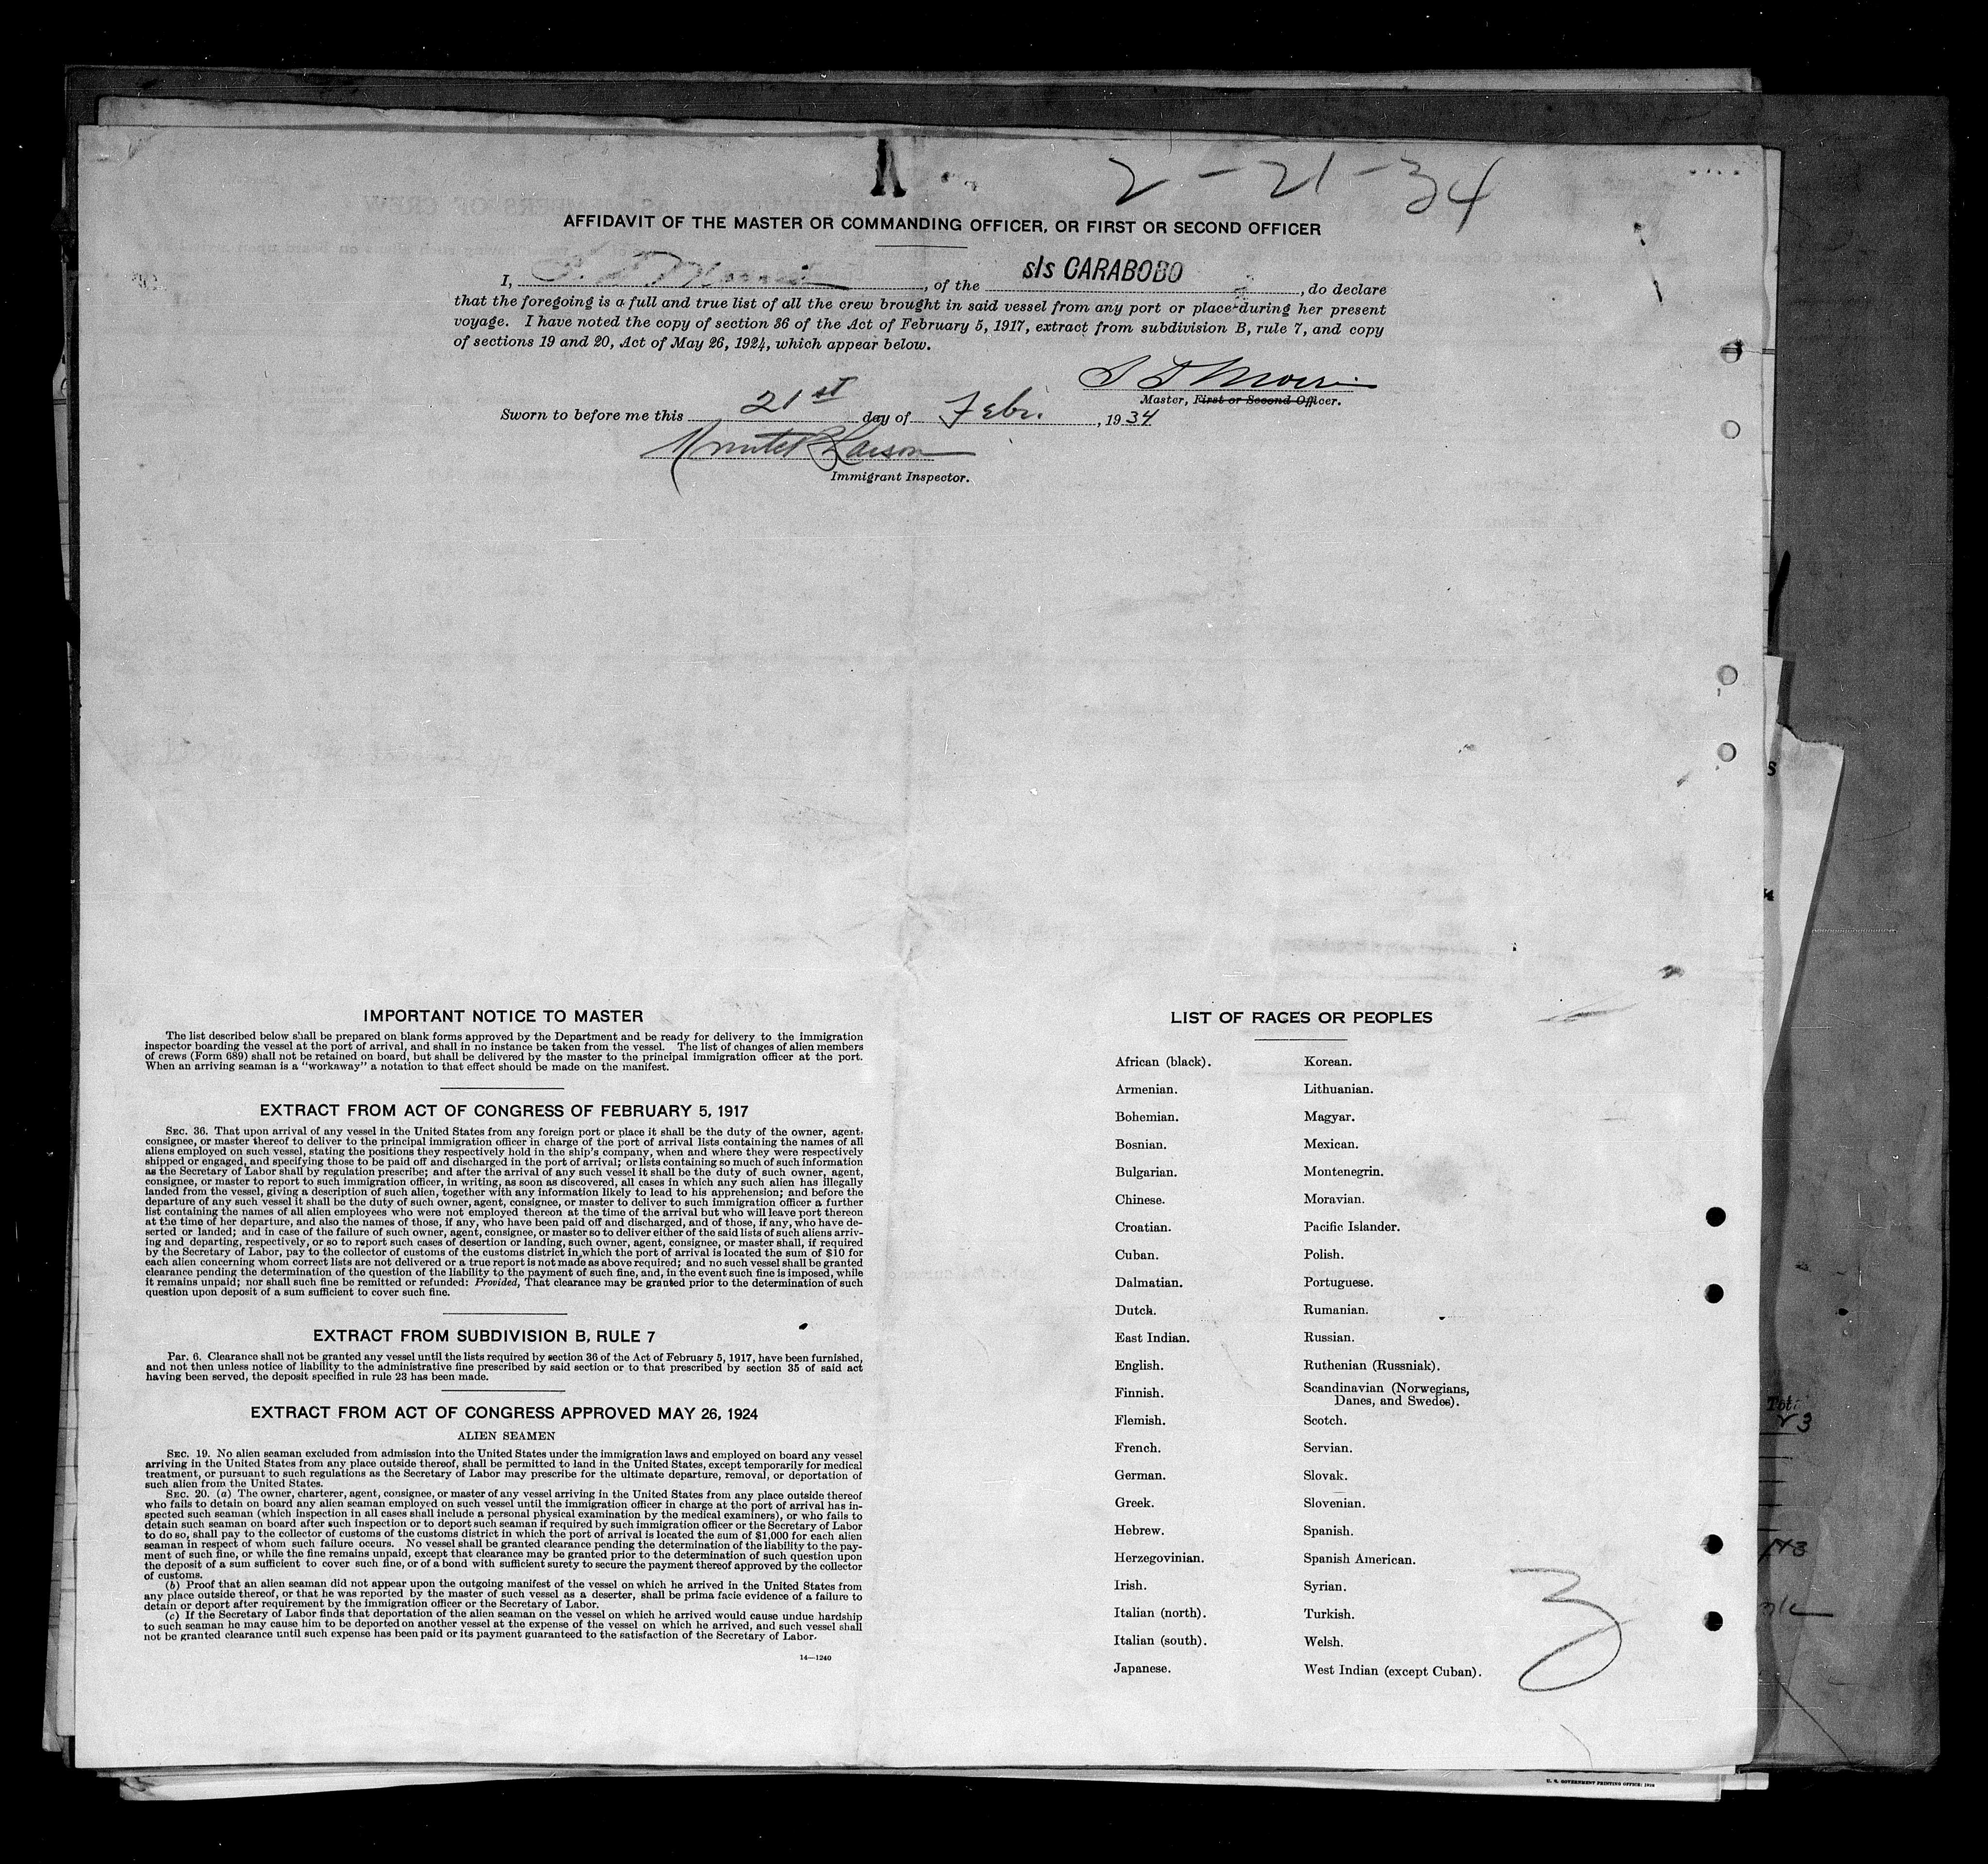 2-21-34
AFFIDAVIT OF THE MASTER OR COMMANDING OFFICER, OR FIRST OR SECOND OFFICER
I, , of the s/s CARABOBO , do declare
that the foregoing is a full and true list of all the crew brought in said vessel from any port or place during her present
voyage. I have noted the copy of section 36 of the Act of February 5, 1917, extract from subdivision B, rule 7, and copy
of sections 19 and 20, Act of May 26, 1924, which appear below.
Master, First or Second Officer.
Sworn to before me this 21st day of Febr. , 1934
Immigrant Inspector.
IMPORTANT NOTICE TO MASTER
The list described below shall be prepared on blank forms approved by the Department and be ready for delivery to the immigration
inspector boarding the vessel at the port of arrival, and shall in no instance be taken from the vessel. The list of changes of alien members
of crews (Form 689) shall not be retained on board, but shall be delivered by the master to the principal immigration officer at the port.
When an arriving seaman is a "workaway" a notation to that effect should be made on the manifest.
EXTRACT FROM ACT OF CONGRESS OF FEBRUARY 5, 1917
SEC. 36. That upon arrival of any vessel in the United States from any foreign port or place it shall be the duty of the owner, agent,
consignee, or master thereof to deliver to the principal immigration officer in charge of the port of arrival lists containing the names of all
aliens employed on such vessel, stating the positions they respectively hold in the ship's company, when and where they were respectively
shipped or engaged, and specifying those to be paid off and discharged in the port of arrival; or lists containing so much of such information
as the Secretary of Labor shall by regulation prescribe; and after the arrival of any such vessel it shall be the duty of such owner, agent,
consignee, or master to report to such immigration officer, in writing, as soon as discovered, all cases in which any such alien has illegally
landed from the vessel, giving a description of such alien, together with any information likely to lead to his apprehension; and before the
departure of any such vessel it shall be the duty of such owner, agent, consignee, or master to deliver to such immigration officer a further
list containing the names of all alien employees who were not employed thereon at the time of the arrival but who will leave port thereon
at the time of her departure, and also the names of those, if any, who have been paid off and discharged, and of those, if any, who have de-
serted or landed; and in case of the failure of such owner, agent, consignee, or master so to deliver either of the said lists of such aliens arriv-
ing and departing, respectively, or so to report such cases of desertion or landing, such owner, agent, consignee, or master shall, if required
by the Secretary of Labor, pay to the collector of customs of the customs district in which the port of arrival is located the sum of $10 for
each alien concerning whom correct lists are not delivered or a true report is not made as above required; and no such vessel shall be granted
clearance pending the determination of the question of the liability to the payment of such fine, and, in the event such fine is imposed, while
it remains unpaid; nor shall such fine be remitted or refunded: Provided, That clearance may be granted prior to the determination of such
question upon deposit of a sum sufficient to cover such fine.
EXTRACT FROM SUBDIVISION B, RULE 7
PAR. 6. Clearance shall not be granted any vessel until the lists required by section 36 of the Act of February 5, 1917, have been furnished,
and not then unless notice of liability to the administrative fine prescribed by said section or to that prescribed by section 35 of said act
having been served, the deposit specified in rule 23 has been made.
EXTRACT FROM ACT OF CONGRESS APPROVED MAY 26, 1924
ALIEN SEAMEN
SEC. 19. No alien seaman excluded from admission into the United States under the immigration laws and employed on board any vessel
arriving in the United States from any place outside thereof, shall be permitted to land in the United States, except temporarily for medical
treatment, or pursuant to such regulations as the Secretary of Labor may prescribe for the ultimate departure, removal, or deportation of
such alien from the United States.
SEC. 20. (a) The owner, charterer, agent, consignee, or master of any vessel arriving in the United States from any place outside thereof
who fails to detain on board any alien seaman employed on such vessel until the immigration officer in charge at the port of arrival has in-
spected such seaman (which inspection in all cases shall include a personal physical examination by the medical examiners), or who fails to
detain such seaman on board after such inspection or to deport such seaman if required by such immigration officer or the Secretary of Labor
to do so, shall pay to the collector of customs of the customs district in which the port of arrival is located the sum of $1,000 for each alien
seaman in respect of whom such failure occurs. No vessel shall be granted clearance pending the determination of the liability to the pay-
ment of such fine, or while the fine remains unpaid, except that clearance may be granted prior to the determination of such question upon
the deposit of a sum sufficient to cover such fine, or of a bond with sufficient surety to secure the payment thereof approved by the collector
of customs.
(b) Proof that an alien seaman did not appear upon the outgoing manifest of the vessel on which he arrived in the United States from
any place outside thereof, or that he was reported by the master of such vessel as a deserter, shall be prima facie evidence of a failure to
detain or deport after requirement by the immigration officer or the Secretary of Labor.
(c) If the Secretary of Labor finds that deportation of the alien seaman on the vessel on which he arrived would cause undue hardship
to such seaman he may cause him to be deported on another vessel at the expense of the vessel on which he arrived, and such vessel shall
not be granted clearance until such expense has been paid or its payment guaranteed to the satisfaction of the Secretary of Labor.
14—1240
LIST OF RACES OR PEOPLES
African (black). Korean.
Armenian. Lithuanian.
Bohemian. Magyar.
Bosnian. Mexican.
Bulgarian. Montenegrin.
Chinese. Moravian.
Croatian. Pacific Islander.
Cuban. Polish.
Dalmatian. Portuguese.
Dutch. Rumanian.
East Indian. Russian.
English. Ruthenian (Russniak).
Finnish. Scandinavian (Norwegians,
Danes, and Swedes).
Flemish. Scotch.
French. Servian.
German. Slovak.
Greek. Slovenian.
Hebrew. Spanish.
Herzegovinian. Spanish American.
Irish. Syrian.
Italian (north). Turkish.
Italian (south). Welsh.
Japanese. West Indian (except Cuban).
3
U. S. GOVERNMENT PRINTING OFFICE: